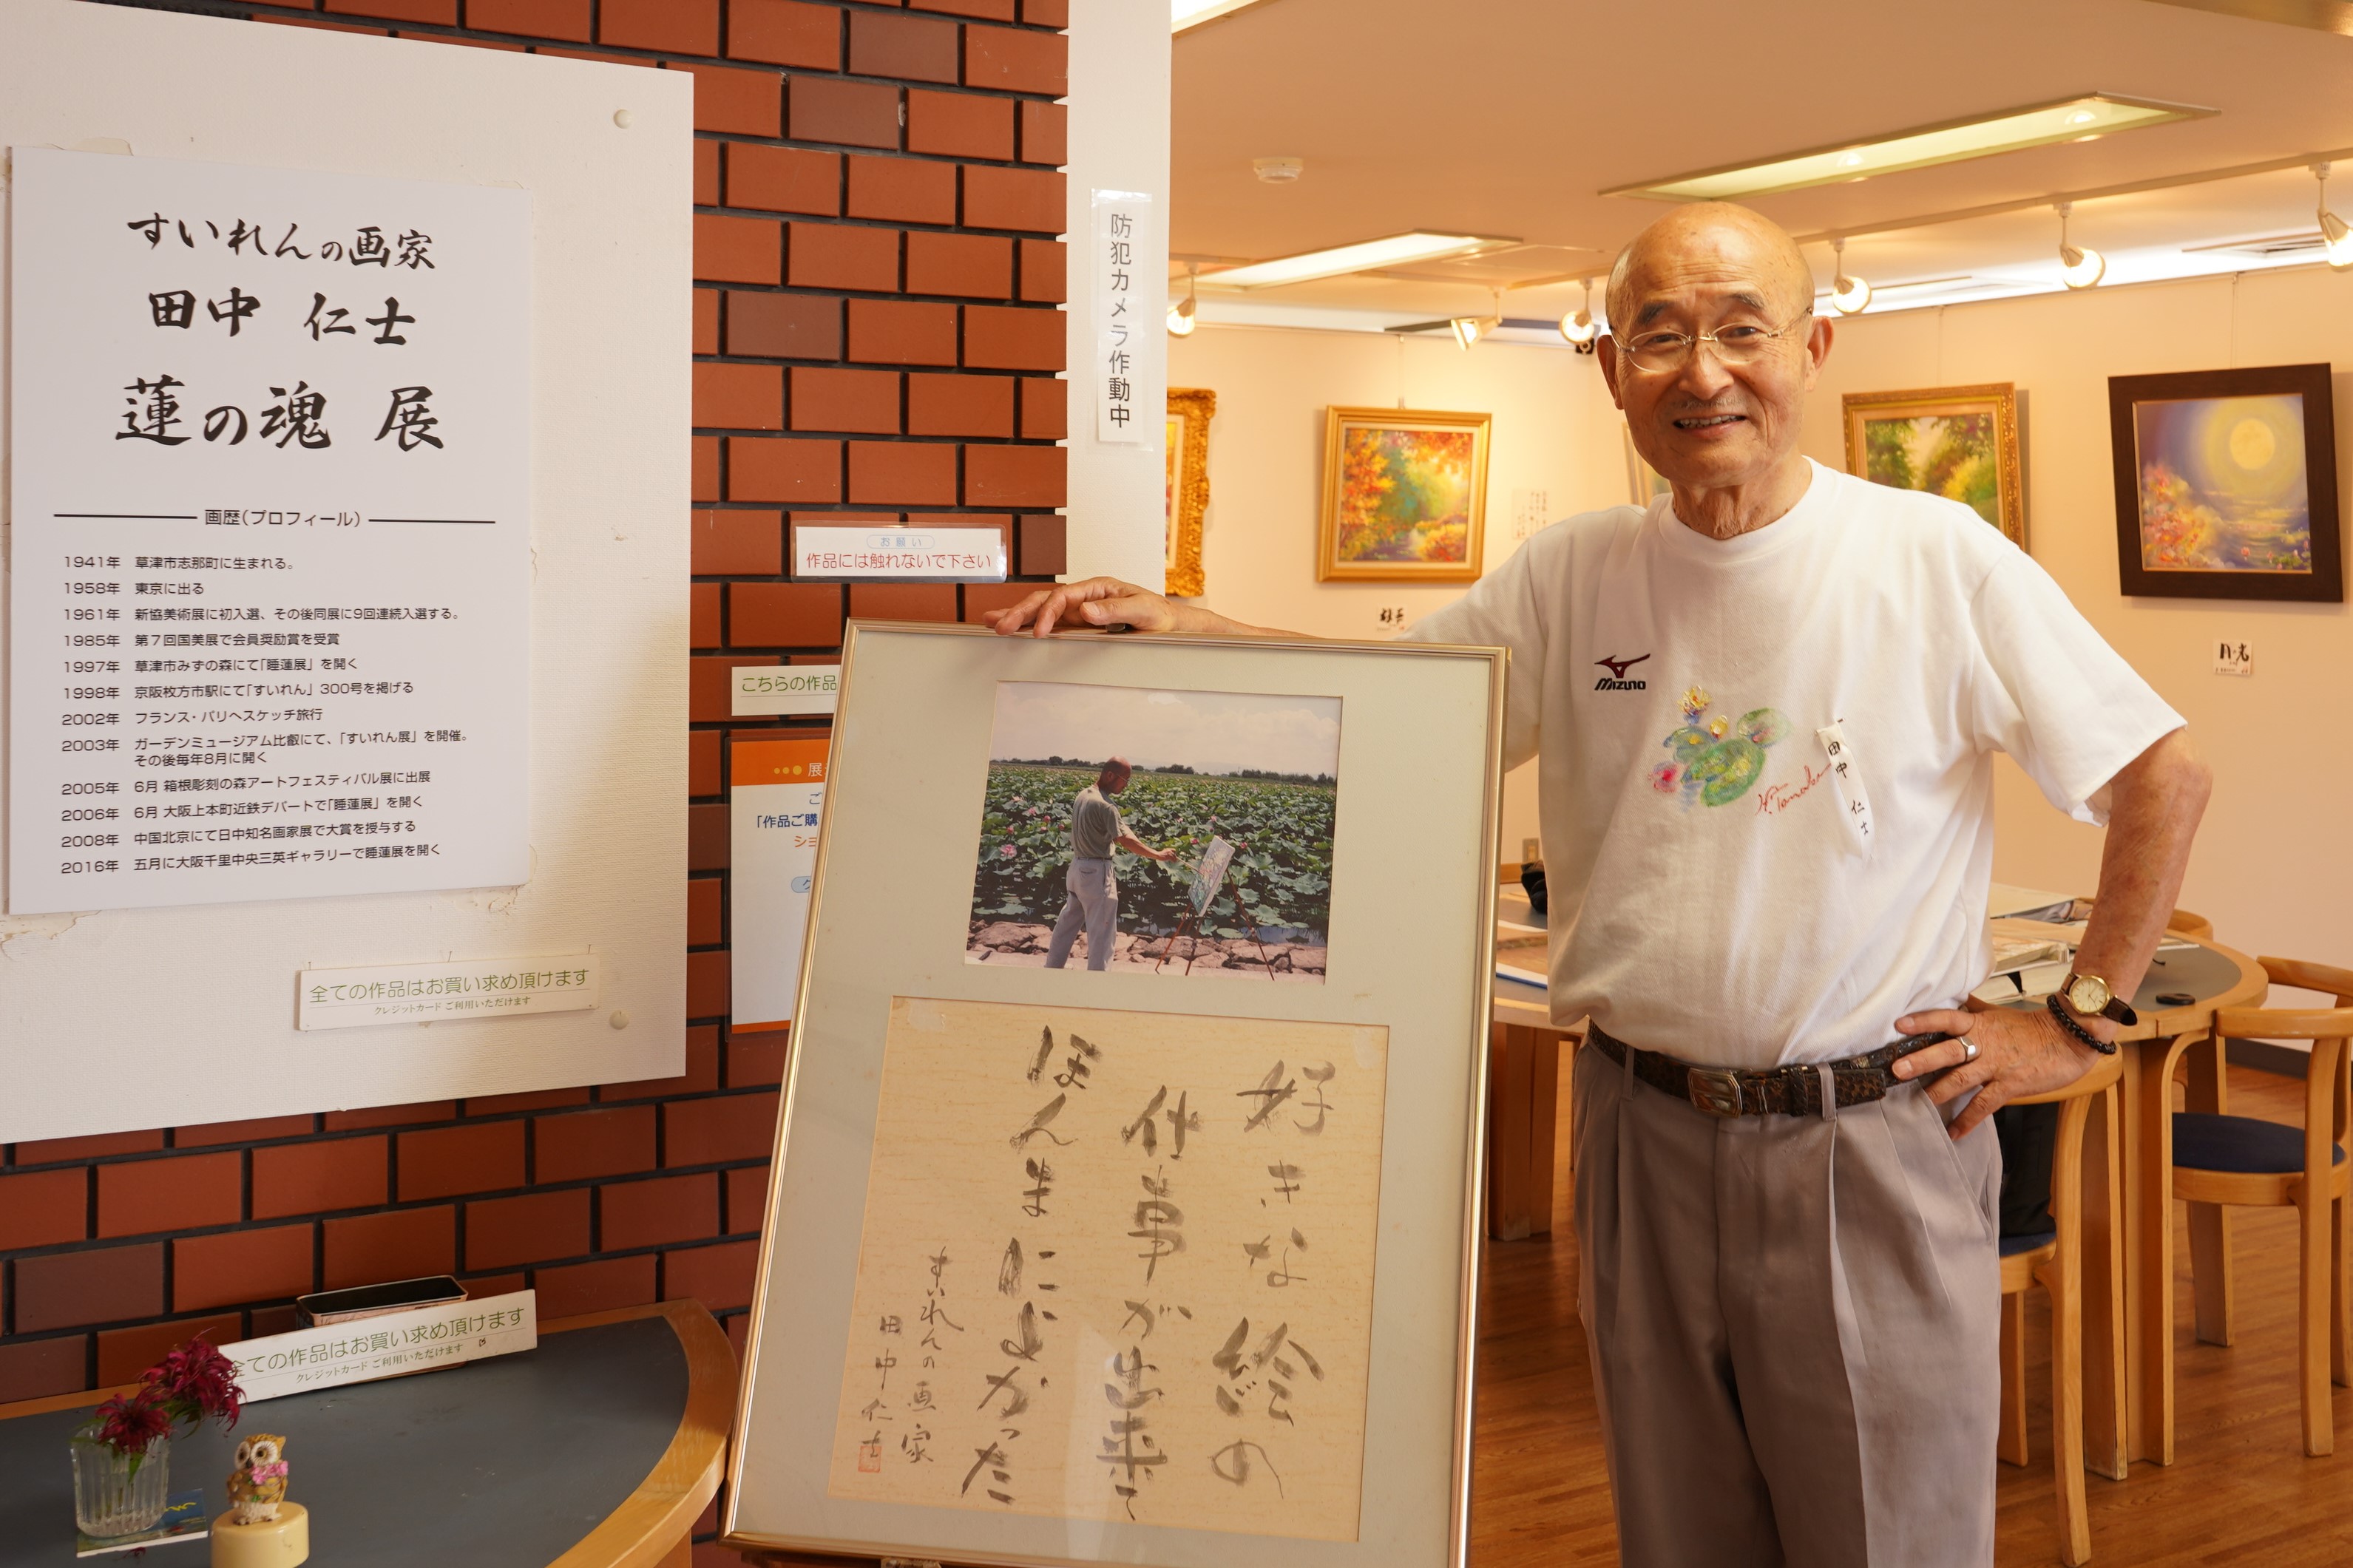 すいれんの画家
田中 仁士
蓮の魂 展
画歴(プロフィール)
1941年 草津市志那町に生まれる。
1958年 東京に出る
1961年 新協美術展に初入選、その後同展に9回連続入選する。
1985年 第7回国美展で会員奨励賞を受賞
1997年 草津市みずの森にて「睡蓮展」を開く
1998年 京阪枚方市駅にて「すいれん」300号を掲げる
2002年 フランス・パリへスケッチ旅行
2003年 ガーデンミュージアム比叡にて、「すいれん展」を開催。
その後毎年8月に開く
2005年 6月 箱根彫刻の森アートフェスティバル展に出展
2006年 6月 大阪上本町近鉄デパートで「睡蓮展」を開く
2008年 中国北京にて日中知名画家展で大賞を授与する
2016年 五月に大阪千里中央三英ギャラリーで睡蓮展を開く
全ての作品はお買い求め頂けます
クレジットカード ご利用いただけます
全ての作品はお買い求め頂けます
クレジットカード ご利用いただけます
防犯カメラ作動中
お願い
作品には触れないで下さい
こちらの作品
展
ご
「作品ご購
ショ
好きな絵の
仕事が出来て
ほんまによかった
すいれんの画家
田中仁士
MIZUNO
田中 仁士
H. Tanaka